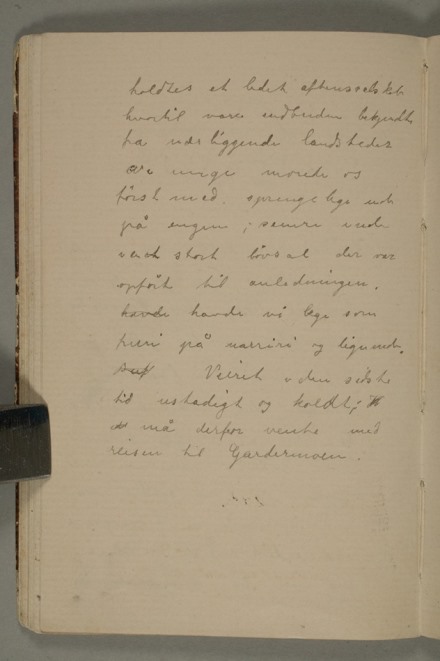 holdtes et lidet aftensselskab
hvortil vare indbuden bekjendte
fra nærliggende landsteder
Vi unge morede os
först med springelege ude
på engen; senere inde
i stort lövsal der var
opfört til anledningen.
havde vi lege som
på narreri og lignende.
Veiret i den sidste
tid ustadigt og koldt;
må derfor vente med
reisen til Gardermoen.